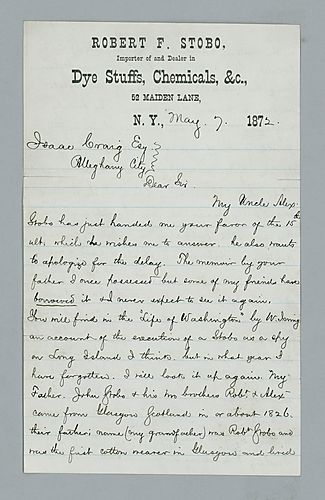 ROBERT F. STOBO,
Importer of and Dealer in
Dye Stuffs, Chemicals, &c.,
52 MAIDEN LANE,
N. Y., May 7. 1872.
Isaac Craig Esq
Alleghany City
Dear Sir.
My Uncle Alex.
Stobo has just handed me your favor of the 15th
ult. which he wishes me to answer. he also wants
to apologize for the delay. The memoir by your
father I once possessed but some of my friends have
borrowed it & I never expect to see it again.
You will find in the "life of Washington" by W. Irving
an account of the execution of a Stobo as a spy
on Long Island I think. but in what year I
have forgotten. I will look it up again. My
Father. John Stobo & his two brothers Robt. & Alex
came from Glasgow Scotland in or about 1826.
their father's name (my grandfather) was Robt Stobo and
was the first cotton weaver in Glasgow and lived